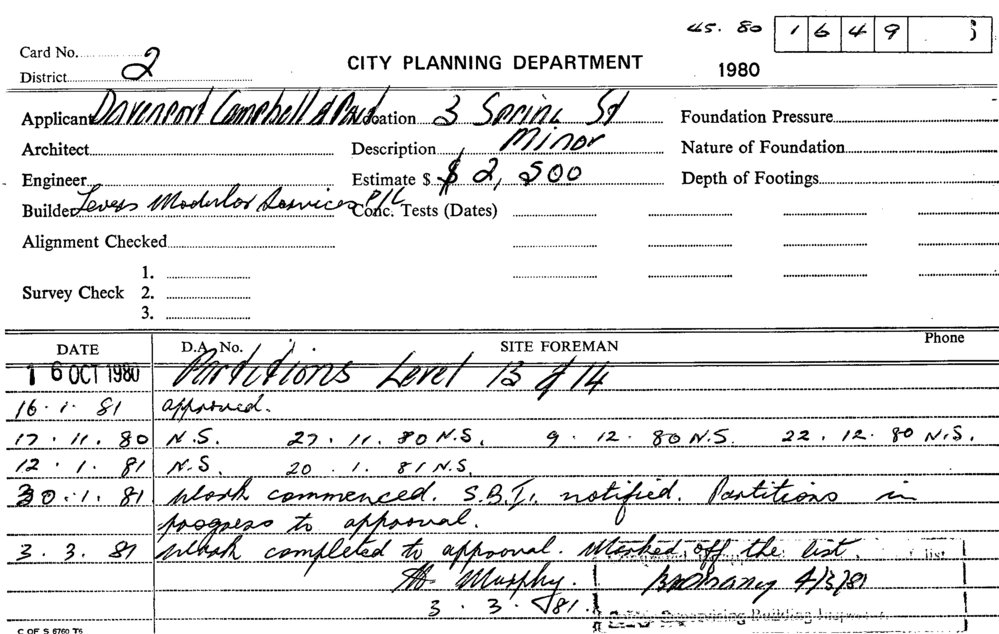 45. 80 1 6 4 9
Card No. 2
District
CITY PLANNING DEPARTMENT
1980
Applicant Davenport Campbell & Location 3 Spring St Foundation Pressure
Architect Description Minor Nature of Foundation
Engineer Estimate $ $ 2,500 Depth of Footings
Builder Levers Modular Services P/L Conc. Tests (Dates)
Alignment Checked
1.
Survey Check 2.
3.
DATE D.A. No. SITE FOREMAN Phone
16 OCT 1980 Partitions Level 13 & 14
16. 1. 81 approved.
17. 11. 80 N.S. 27. 11. 80 N.S. 9. 12. 80 N.S. 22. 12. 80 N.S.
12. 1. 81 N.S. 20. 1. 81 N.S.
30. 1. 81 Work commenced. S.B.I. notified. Partitions in
progress to approval.
3. 3. 81 Work completed to approval. Marked off the list
Murphy. 4/3/81
3. 3. 81. Supervising Building Inspector
C OF S 6760 T6